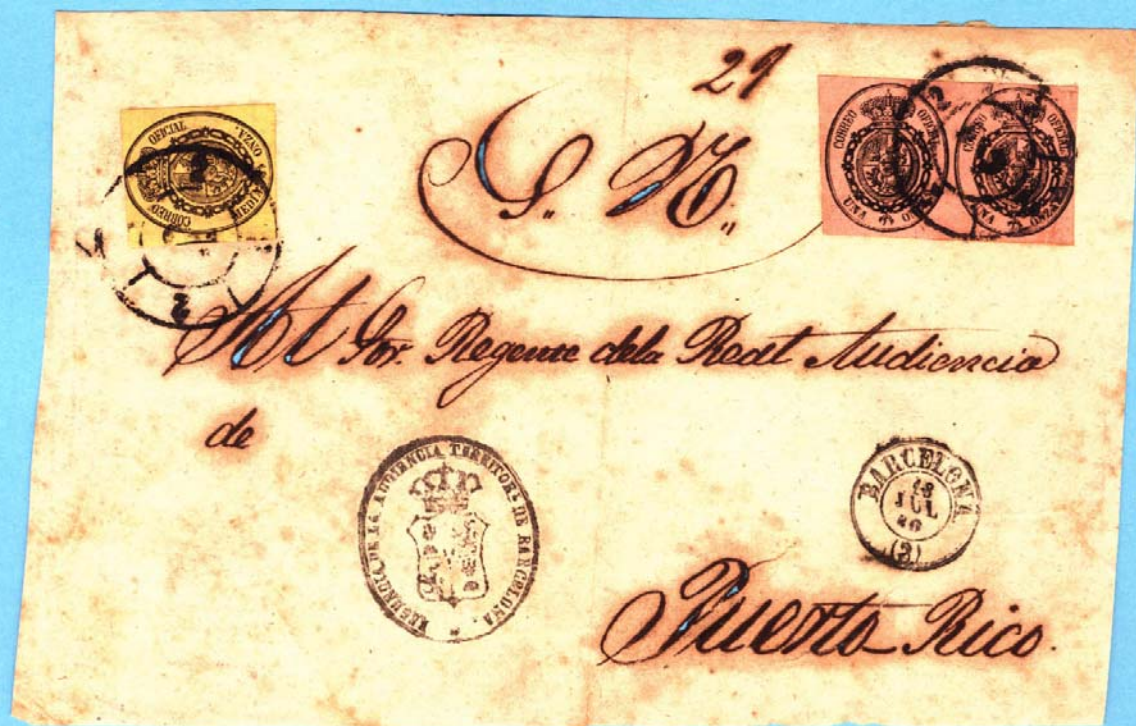 29
S. N.
CORREO OFICIAL
MEDIA ONZA.
CORREO OFICIAL
UNA ONZA
CORREO OFICIAL
UNA ONZA
2
Al Sor. Regente dela Real Audiencia
de
REGENCIA DE LA AUDIENCIA TERRITOR. DE BARCELONA.
BARCELONA
JUL
(2)
Puerto-Rico.